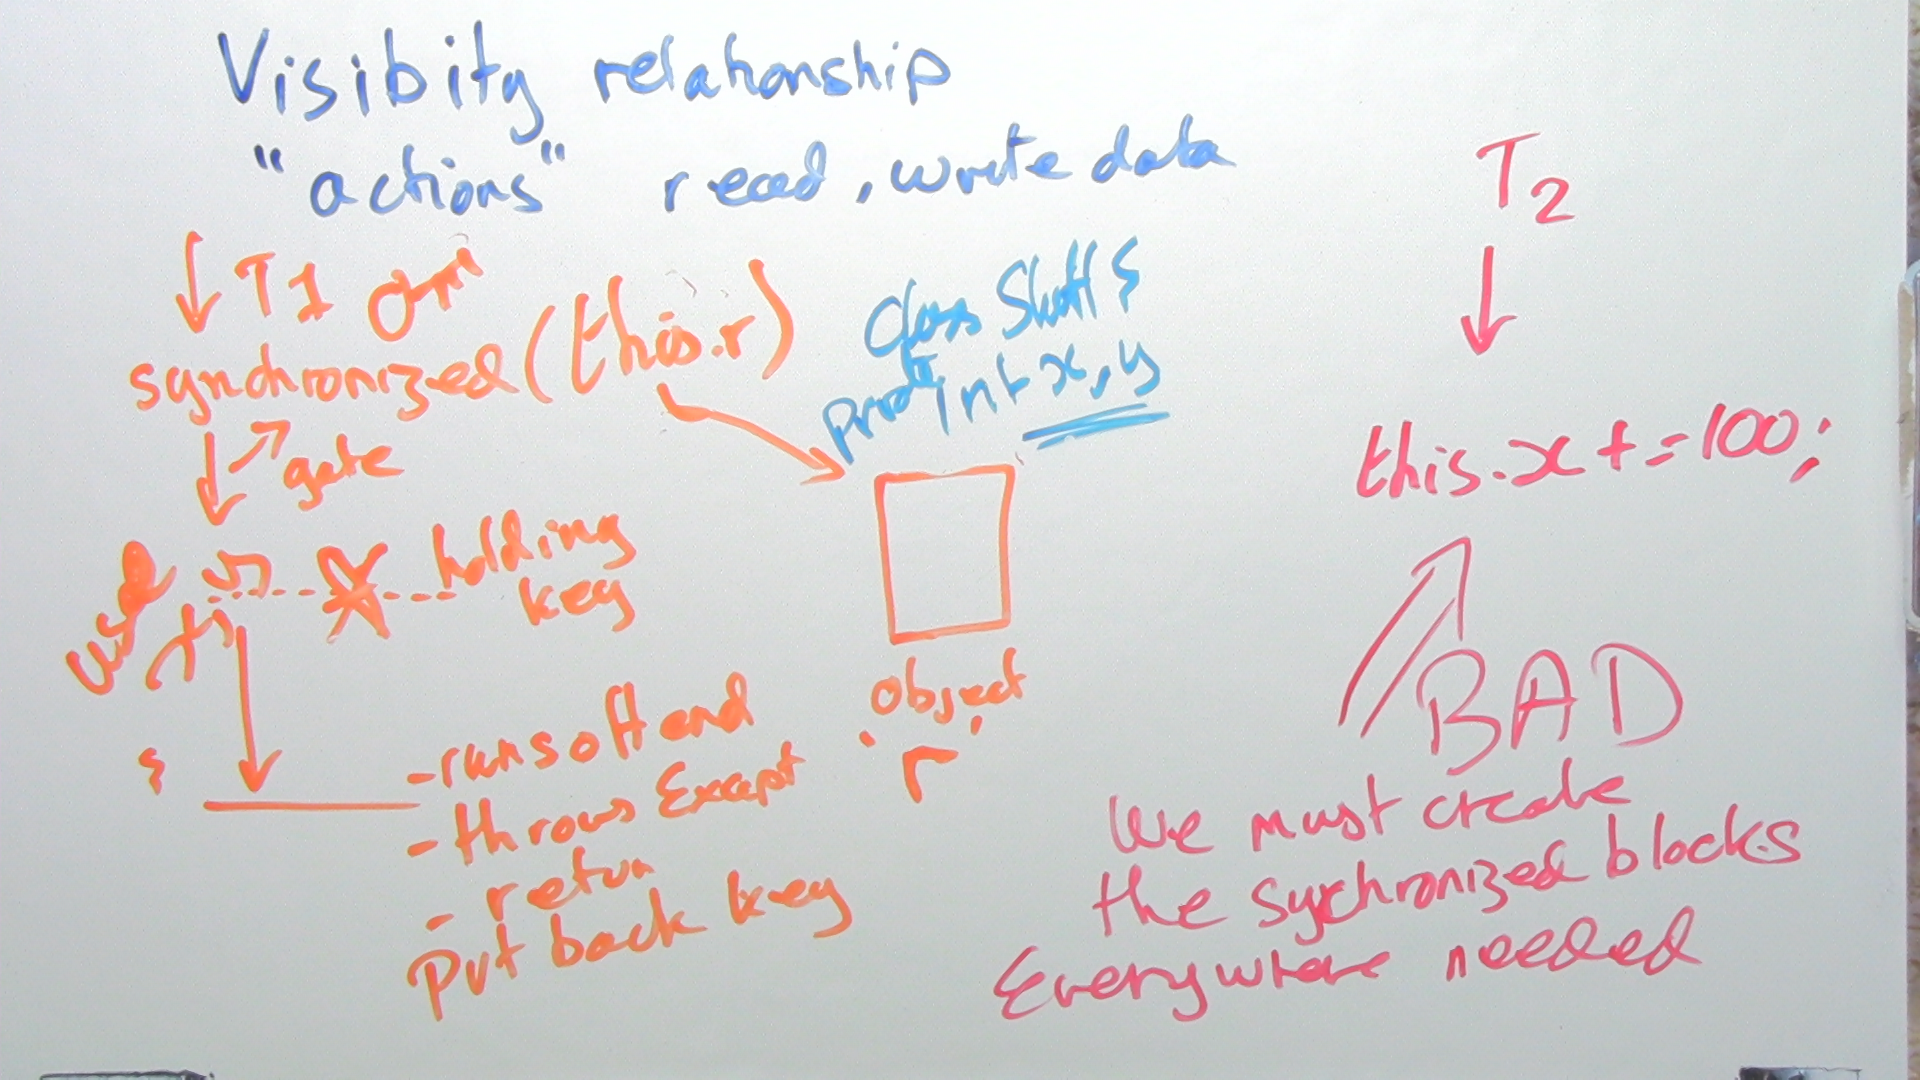 Visibity relationship
"actions" read, write data
↓ T1
synchronized (this.r)
gate
holding
key
used
- runs off end
- throws Except
- retun
put back key
class Stuff {
private int x, y
object
'r'
T2
this.x += 100;
BAD
We must create
the sychronized blocks
Everywhere needed